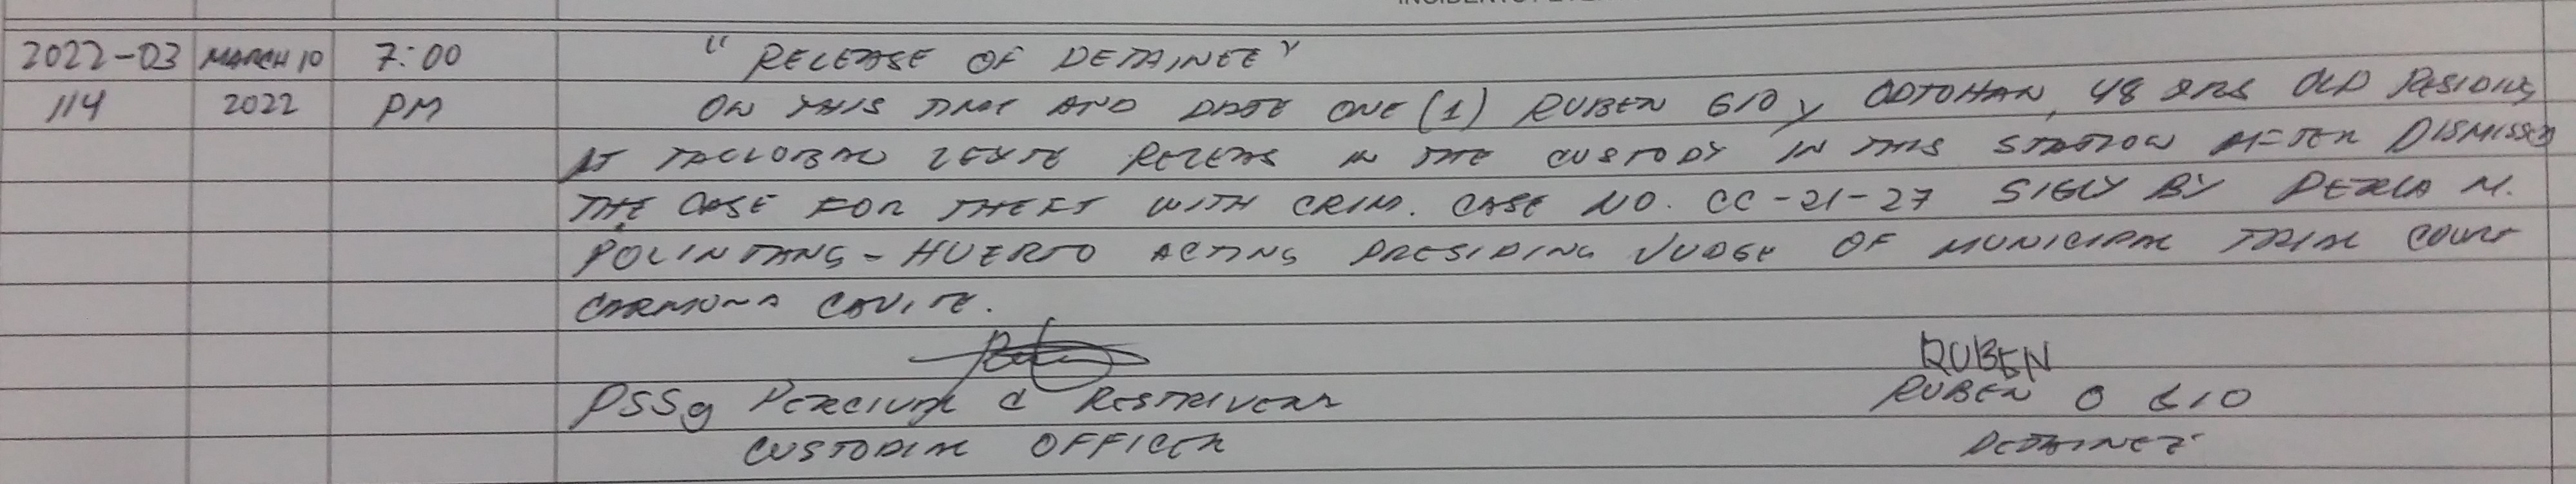 2022-03 MARCH 10 7:00 "RELEASE OF DETAINEE"
114 2022 PM ON THIS TIME AND DATE ONE (1) RUBEN GIO y ODTOHAN, 48 YRS OLD RESIDING
AT TACLOBAN LEYTE RELEAS IN THE CUSTODY IN THIS STATION AFTER DISMISSED
THE CASE FOR THEFT WITH CRIM. CASE NO. CC-21-27 SIGLY BY PERLA M.
POLINTANG-HUERTO ACTING PRESIDING JUDGE OF MUNICIPAL TRIAL COURT
CARMONA CAVITE.
RUBEN
PSSg PERCIVAL C RESTRIVERA RUBEN O GIO
CUSTODIAL OFFICER DETAINEE